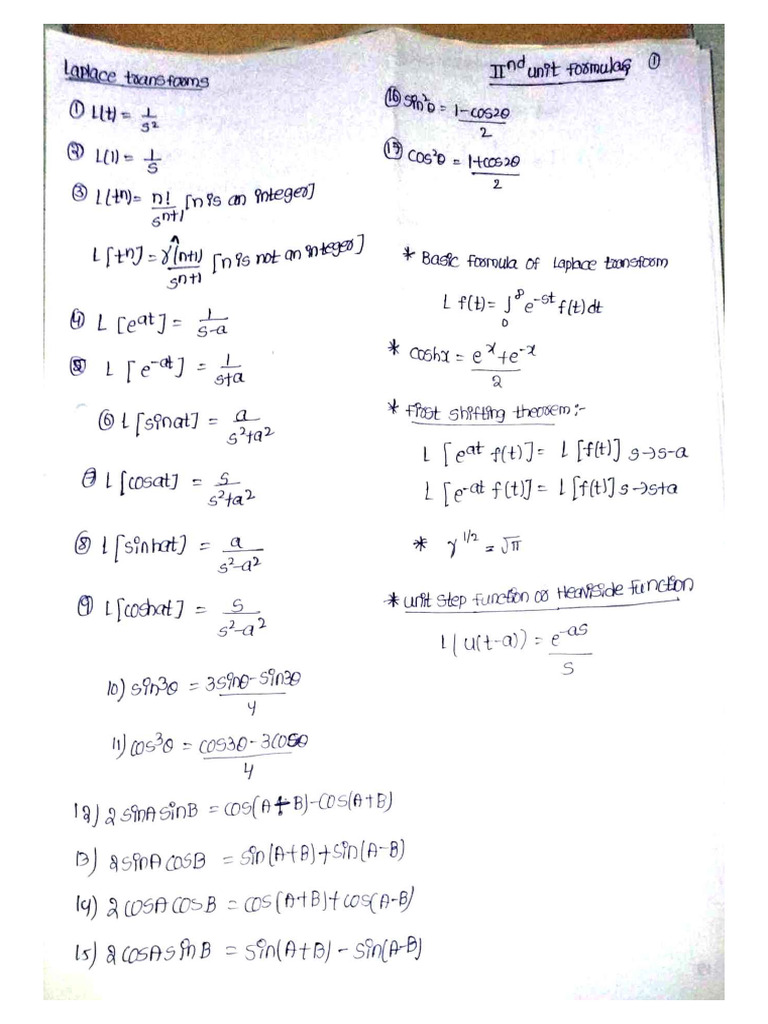 Laplace transforms
① L(t) = 1/s²
② L(1) = 1/s
③ L(tⁿ) = n!/sⁿ⁺¹ [n is an integer]
L[tⁿ] = γ(n+1)/sⁿ⁺¹ [n is not an integer]
④ L[eᵃᵗ] = 1/(s-a)
⑤ L[e⁻ᵃᵗ] = 1/(s+a)
⑥ L[sinat] = a/(s²+a²)
⑦ L[cosat] = s/(s²+a²)
⑧ L[sinhat] = a/(s²-a²)
⑨ L[coshat] = s/(s²-a²)
10) sin³θ = (3sinθ-sin3θ)/4
11) cos³θ = (cos3θ-3cosθ)/4
12) 2sinAsinB = cos(A+B)-cos(A+B)
13) 2sinAcosB = sin(A+B)+sin(A-B)
14) 2cosAcosB = cos(A+B)+cos(A-B)
15) 2cosAsinB = sin(A+B)-sin(A-B)
IInd unit formulas ①
⑯ sin²θ = (1-cos2θ)/2
⑰ cos²θ = (1+cos2θ)/2
* Basic formula of Laplace transform
L f(t) = ∫₀^∞ e^-st f(t)dt
* coshx = (eˣ+e⁻ˣ)/2
* First shifting theorem:-
L[eᵃᵗ f(t)] = L[f(t)] s→s-a
L[e⁻ᵃᵗ f(t)] = L[f(t)] s→s+a
* γ^1/2 = √π
* Unit step function or Heaviside function
L(u(t-a)) = e^-as/s